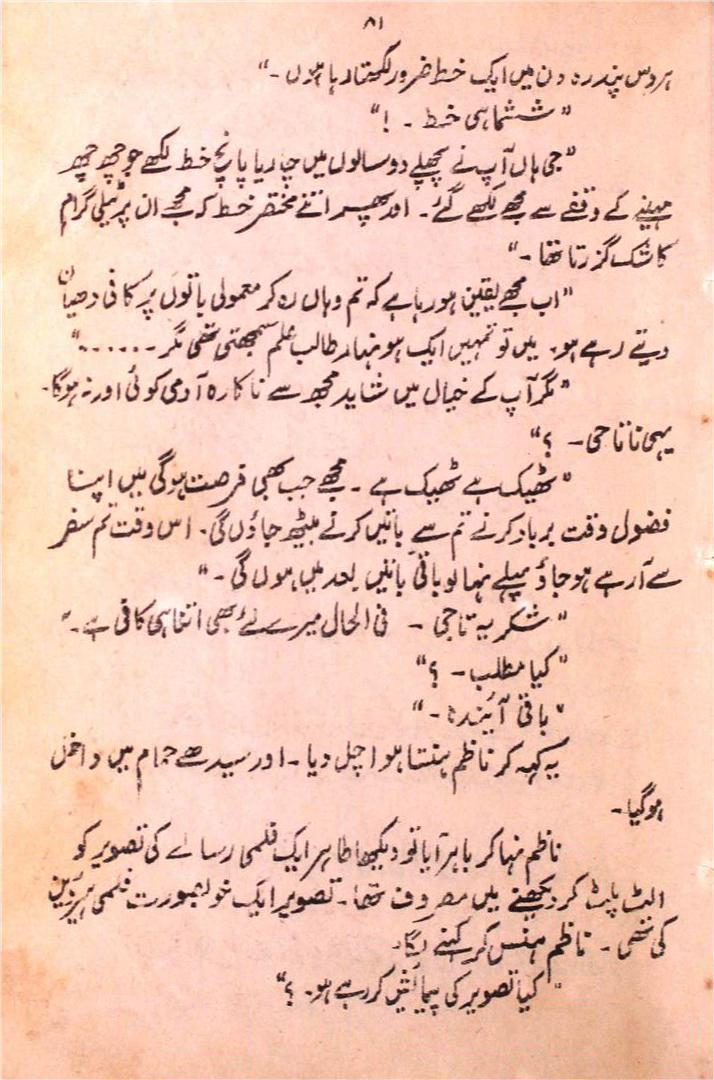 ۸۱
ہر دس پندرہ دن میں ایک خط ضرور لکھتا رہا ہوں ۔"
"ششماہی خط ۔ !"
"جی ہاں آپ نے پچھلے دو سالوں میں چار یا پانچ خط لکھے جو چھ چھ
مہینے کے وقفے سے مجھے لکھے گئے۔ اور پھر اتنے مختصر خط کہ مجھے ان پر ٹیلی گرام
کا شک گزرتا تھا ۔"
"اب مجھے یقین ہو رہا ہے کہ تم وہاں رہ کر معمولی باتوں پر کافی دھیان
دیتے رہے ہو۔ میں تو تمہیں ایک ہونہار طالب علم سمجھتی تھی مگر ۔......"
"مگر آپ کے خیال میں شاید مجھ سے ناکارہ آدمی کوئی اور نہ ہوگا۔
یہی نا تاجی ۔ ؟"
"ٹھیک ہے ٹھیک ہے ۔ مجھے جب بھی فرصت ہوگی میں اپنا
فضول وقت برباد کرنے تم سے باتیں کرنے بیٹھ جاؤں گی۔ اس وقت تم سفر
سے آ رہے ہو جاؤ پہلے نہا لو باقی باتیں بعد میں ہوں گی ۔"
"شکریہ تاجی ۔ فی الحال میرے لئے بھی اتنا ہی کافی ہے ۔"
"کیا مطلب ۔ ؟"
"باقی آیندہ ۔"
یہ کہہ کر ناظم ہنستا ہوا چل دیا ۔ اور سیدھے حمام میں داخل
ہوگیا ۔
ناظم نہا کر باہر آیا تو دیکھا طاہر ایک فلمی رسالے کی تصویر کو
الٹ پلٹ کر دیکھنے میں مصروف تھا ۔ تصویر ایک خوبصورت فلمی ہیروئین
کی تھی ۔ ناظم ہنس کر کہنے لگا۔
"کیا تصویر کی پیمائش کر رہے ہو ۔ ؟"